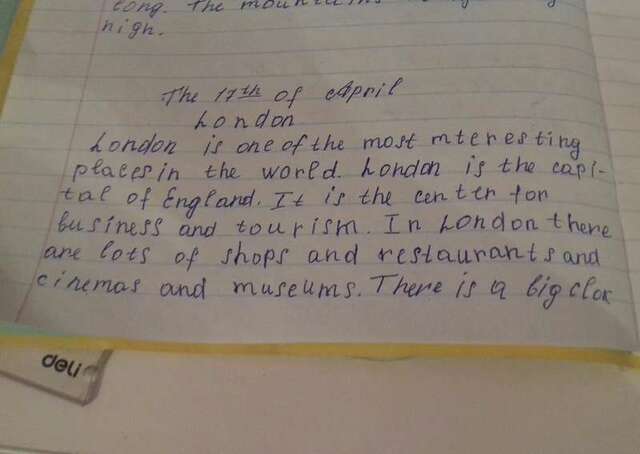 long. The mountains
high.
The 17th of April
London
London is one of the most interesting
places in the world. London is the capi-
tal of England. It is the center for
business and tourism. In London there
are lots of shops and restaurants and
cinemas and museums. There is a big clok
deli